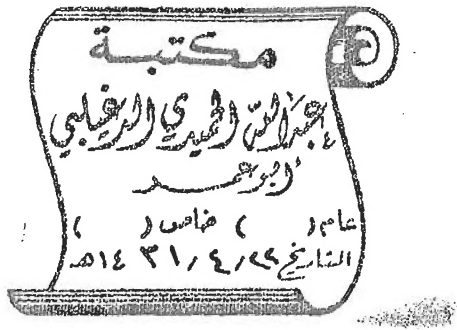 مكتبة
عبدالله الحميدي الدغيلبي
أبو حمد
عام ( ) خاص ( )
التاريخ ٢٢ / ٤ / ١٤٣١هـ